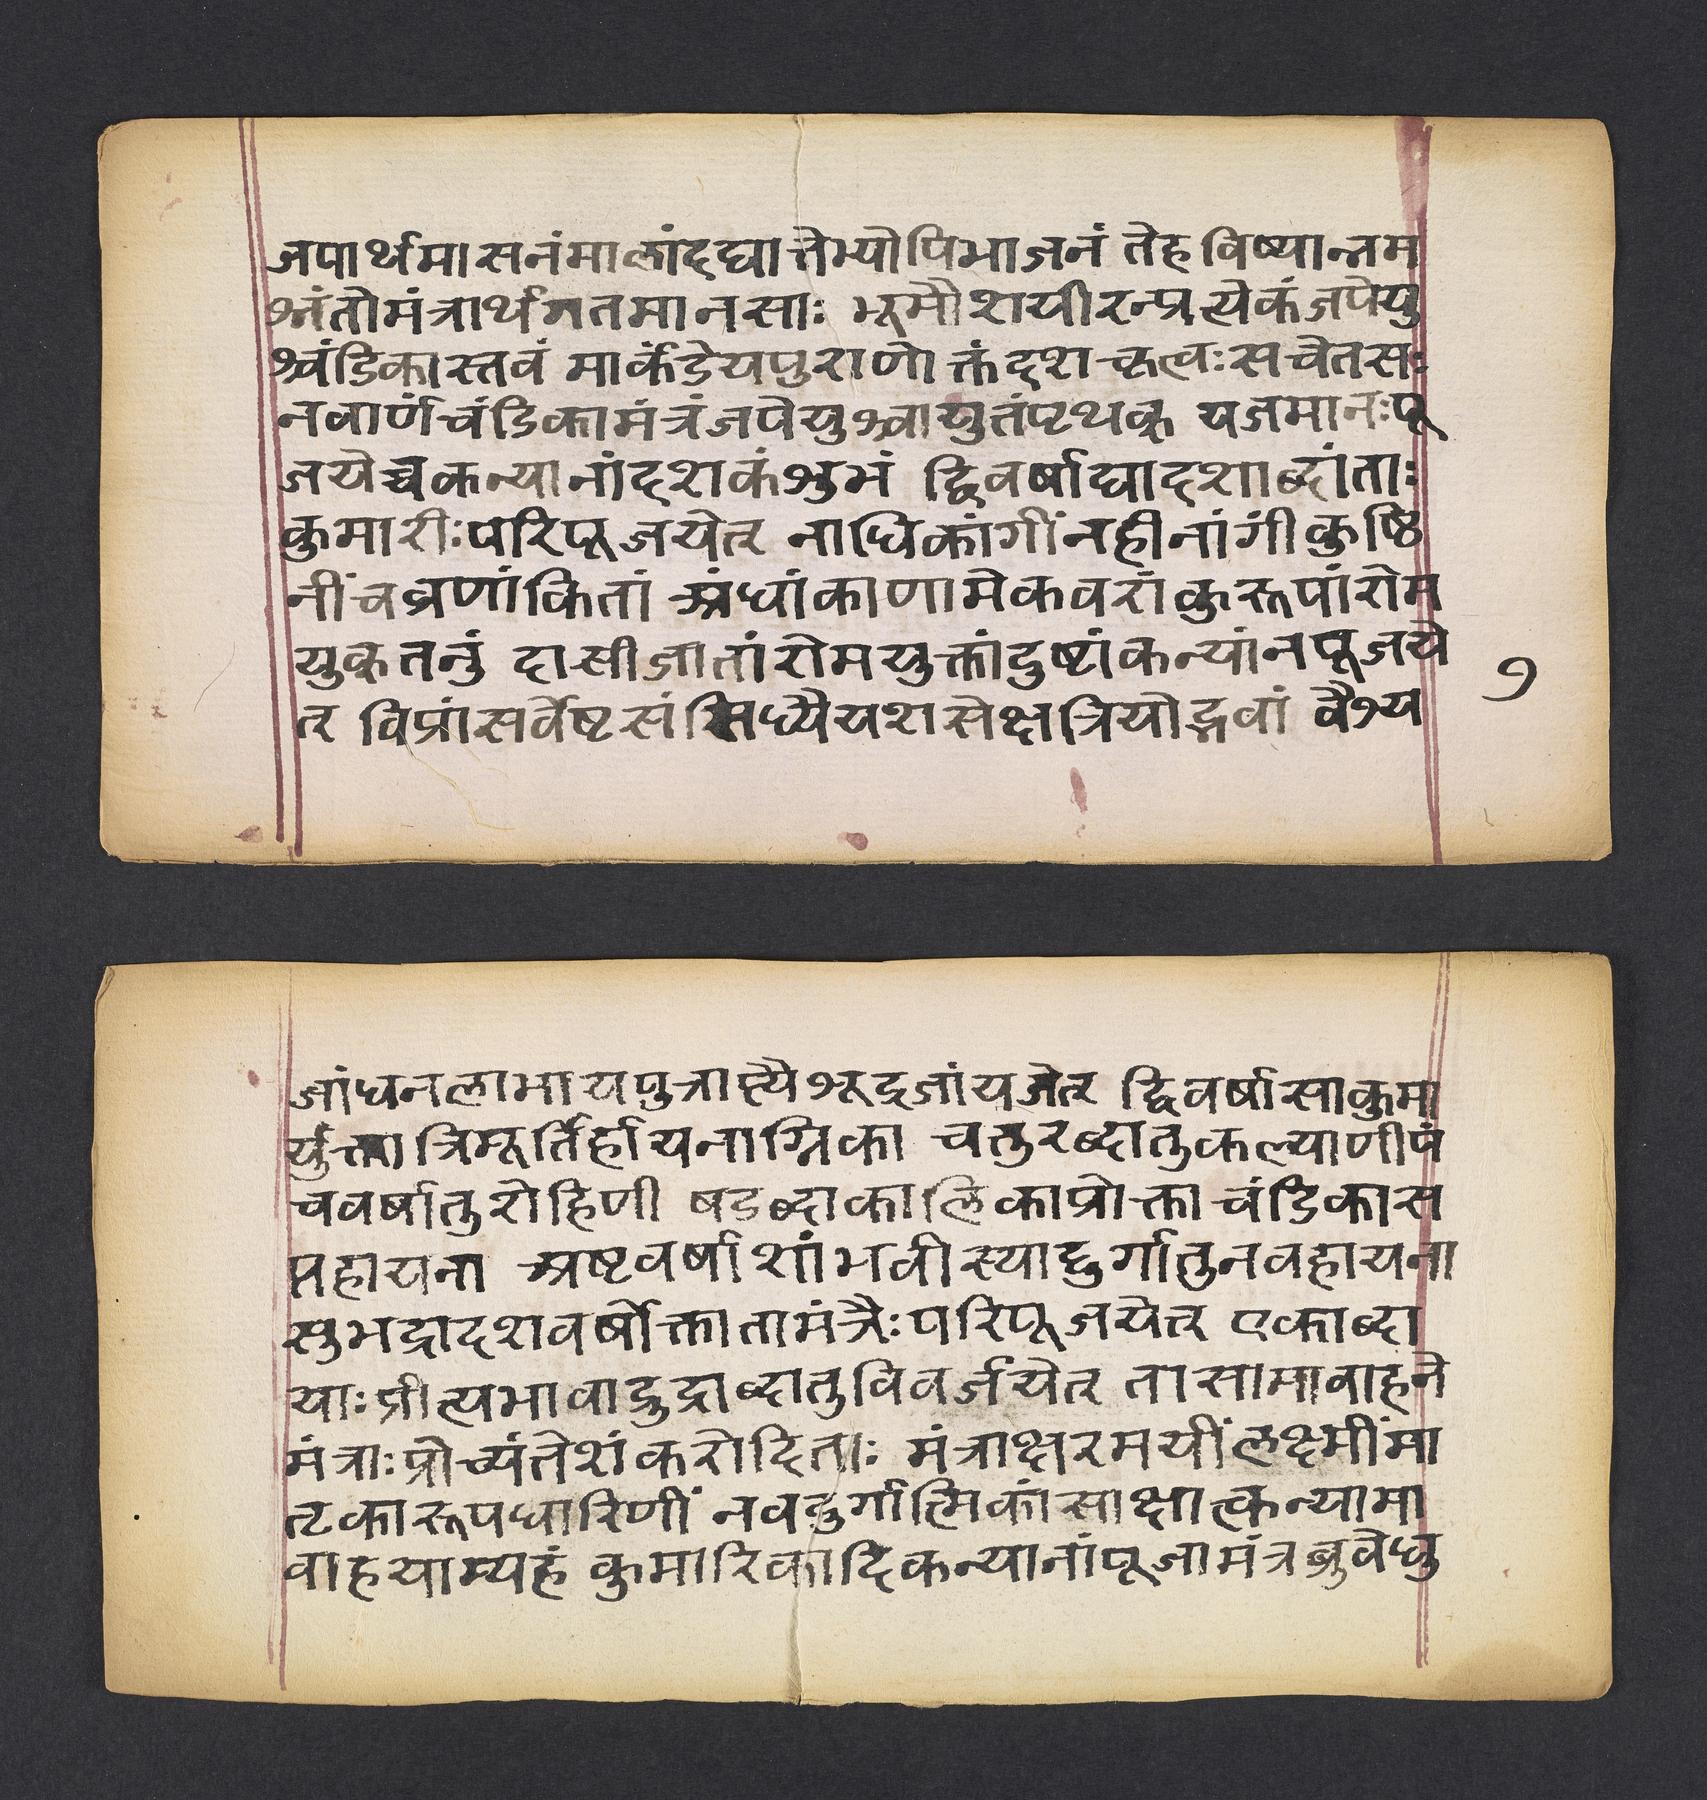 जपार्थमासनंमालांदद्यात्तेभ्योपिभाजनं तेहविष्यान्नम
श्नंतोमंत्रार्थगतमानसाः भूमौशयीरन्प्रत्येकंजपेयु
श्चंडिकास्तवं मार्कंडेयपुराणोक्तंदशकृत्वःसचेतसः
नवार्णंचंडिकामंत्रंजपेयुश्चायुतंपृथक् यजमानःपू
जयेच्चकन्यानांदशकंशुभं द्विवर्षाद्यादशाब्दांताः
कुमारीःपरिपूजयेत् नाधिकांगींनहीनांगीकुष्ठि
नींचव्रणांकितां अंधांकाणामेकवरांकुरूपांरोम
युक्तनुं दासीजातांरोमयुक्तांदुष्टांकन्यांनपूजये
त् विप्रांसर्वेष्टसंसिध्यैयशसेक्षत्रियोद्भवां वैश्य
७
जांधनलाभायपुत्राप्त्यैशूद्रजांयजेत् द्विवर्षासाकुमा
र्युक्तात्रिमूर्तिर्हायनाग्निका चतुरब्दातुकल्याणीपं
चवर्षातुरोहिणी षडब्दाकालिकाप्रोक्ताचंडिकास
प्तहायना अष्टवर्षाशांभवीस्याद्दुर्गातुनवहायना
सुभद्रादशवर्षोक्तातामंत्रैःपरिपूजयेत् एकाब्दा
याःप्रीत्यभावाद्रुद्राब्दातुविवर्जयेत् तासामावाहने
मंत्राःप्रोच्यंतेशंकरोदिताः मंत्राक्षरमयींलक्ष्मींमा
तृकारूपधारिणीं नवदुर्गात्मिकांसाक्षात्कन्यामा
वाहयाम्यहं कुमारिकादिकन्यानांपूजामंत्रब्रुवेधु